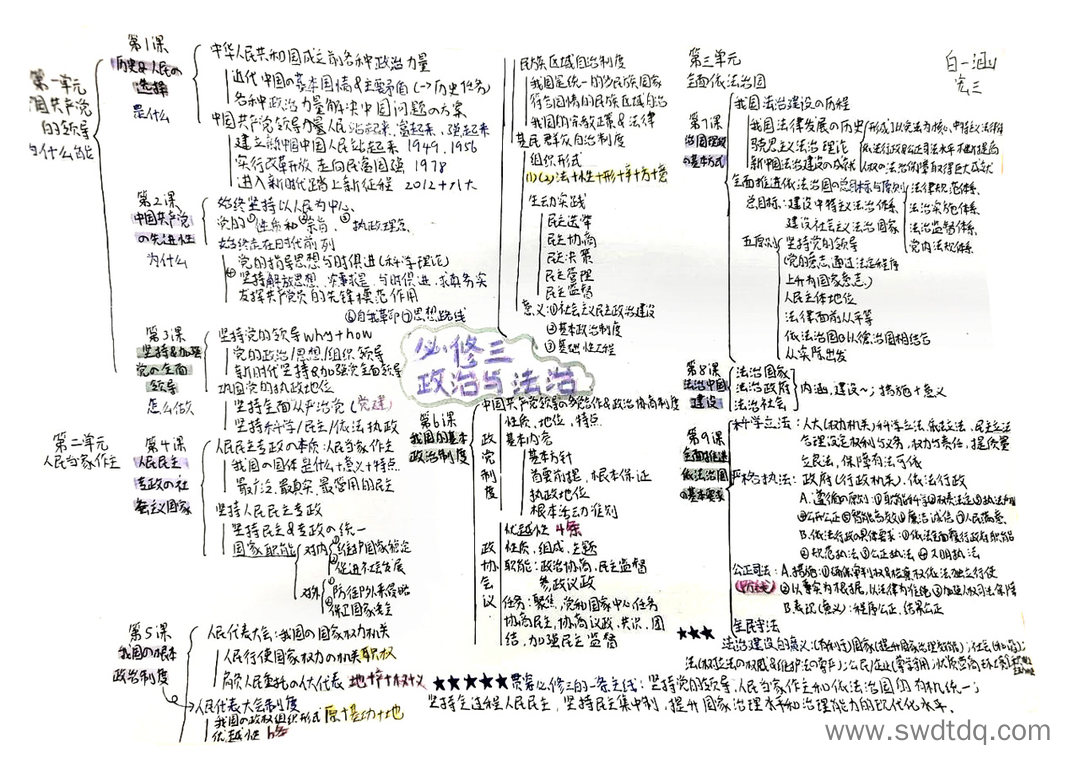 第一单元
中国共产党
的领导
第1课
历史&人民の
选择
是什么
中华人民共和国成立前各种政治力量
近代中国の基本国情&主要矛盾(→历史任务)
各种政治力量解决中国问题の方案
中国共产党领导力量人民站起来,富起来,强起来
建立新中国中国人民站起来 1949、1956
实行改革开放 走向民富国强 1978
进入新时代踏上新征程 2012十八大
第2课
中国共产党
の先进性
为什么
始终坚持以人民为中心
党的①性质和②宗旨、③执政理念
始终走在时代前列
党の指导思想与时俱进(科学理论)
④坚持解放思想、实事求是、与时俱进、求真务实
发挥共产党员の先锋模范作用
⑥自我革命⑦思想路线
第3课
坚持&加强
党の全面
领导
怎么做
坚持党的领导why+how
党の政治/思想/组织领导
新时代坚持&加强党全面领导
巩固党の执政地位
坚持全面从严治党(党建)
坚持科学/民主/依法执政
第二单元
人民当家作主
第4课
人民民主
专政の社
会主义国家
人民民主专政の本质:人民当家作主
我国の国体是什么+意义+特点
最广泛、最真实、最管用的民主
坚持人民民主专政
坚持民主&专政の统一
国家职能
对内
①维护国家稳定
②促进社会发展
对外
①防御外来侵略
②保卫国家安全
第5课
我国の根本
政治制度
人民代表大会:我国の国家权力机关
人民行使国家权力の机关 职权
人大代表 地+职+权+义
人民代表大会制度
我国の政权组织形式 原+基+功+地
优越性 6条
民族区域自治制度
我国是统一的多民族国家
符合国情の民族区域自治
我国的宗教政策&法律
基层群众自治制度
组织形式
生动实践
民主选举
民主协商
民主决策
民主管理
民主监督
意义:①社会主义民主政治建设
②基本政治制度
③基础性工程
必修三
政治与法治
第6课
我国の基本
政治制度
中国共产党领导の多党合作&政治协商制度
政党制度
性质、地位、特点
基本内容
基本方针
首要前提、根本保证
执政地位
根本活动准则
优越性 4条
政协会议
性质、组成、主题
职能:政治协商、民主监督
参政议政
任务:聚焦,党和国家中心任务
协商民主,协商议政、共识、团
结,加强民主监督
第三单元
全面依法治国
第7课
治国理政
の基本方式
我国法治建设の历程
我国法律发展の历史
马克思主义法治理论
新中国法治建设の成就
形成以宪法为核心、中特主义法律体系
依法行政&公正司法水平不断提高
人权の法治保障取得巨大成就
全面推进依法治国の总目标与原则
总目标:建设中特主义法治体系
建设社会主义法治国家
法律规范体系
法治实施体系
法治监督体系
党内法规体系
五原则
坚持党の领导
(党の意志通过法定程序
上升为国家意志)
人民主体地位
法律面前人人平等
依法治国&以德治国相结合
从实际出发
第8课
法治中国
建设
法治国家
法治政府
法治社会
内涵、建设~;措施+意义
第9课
全面推进
依法治国
の基本要求
科学立法:人大(权力机关)科学立法、依法立法、民主立法
合理设定权利与义务,权力与责任,提质量
立良法,保障有法可依
严格执法:政府(行政机关)、依法行政
B.依法行政の具体要求:①依法全面履行政府职能
②规范执法③公正执法④文明执法
公正司法:A.措施:①确保审判权&检察权依法独立行使
(防线)②以事实为根据,以法律为准绳③加强人权司法保障
B.表现(意义):程序公正、结果公正
全民守法
★★★ 法治建设の意义:(有利于)国家(提升国家治理效能);社会(和谐);
★★★★★贯穿必修三的一条主线:坚持党的领导、人民当家作主和依法治国的有机统一;
坚持全过程人民民主,坚持民主集中制,提升国家治理水平和治理能力的现代化水平.
白一涵
高三
www.swdtdq.com